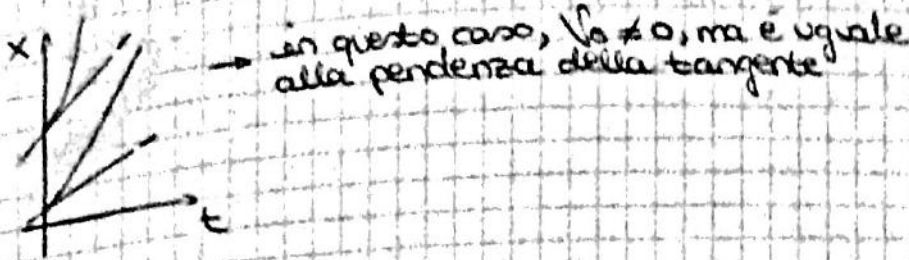 x
→ in questo caso, V₀ ≠ 0, ma è uguale
alla pendenza della tangente
t